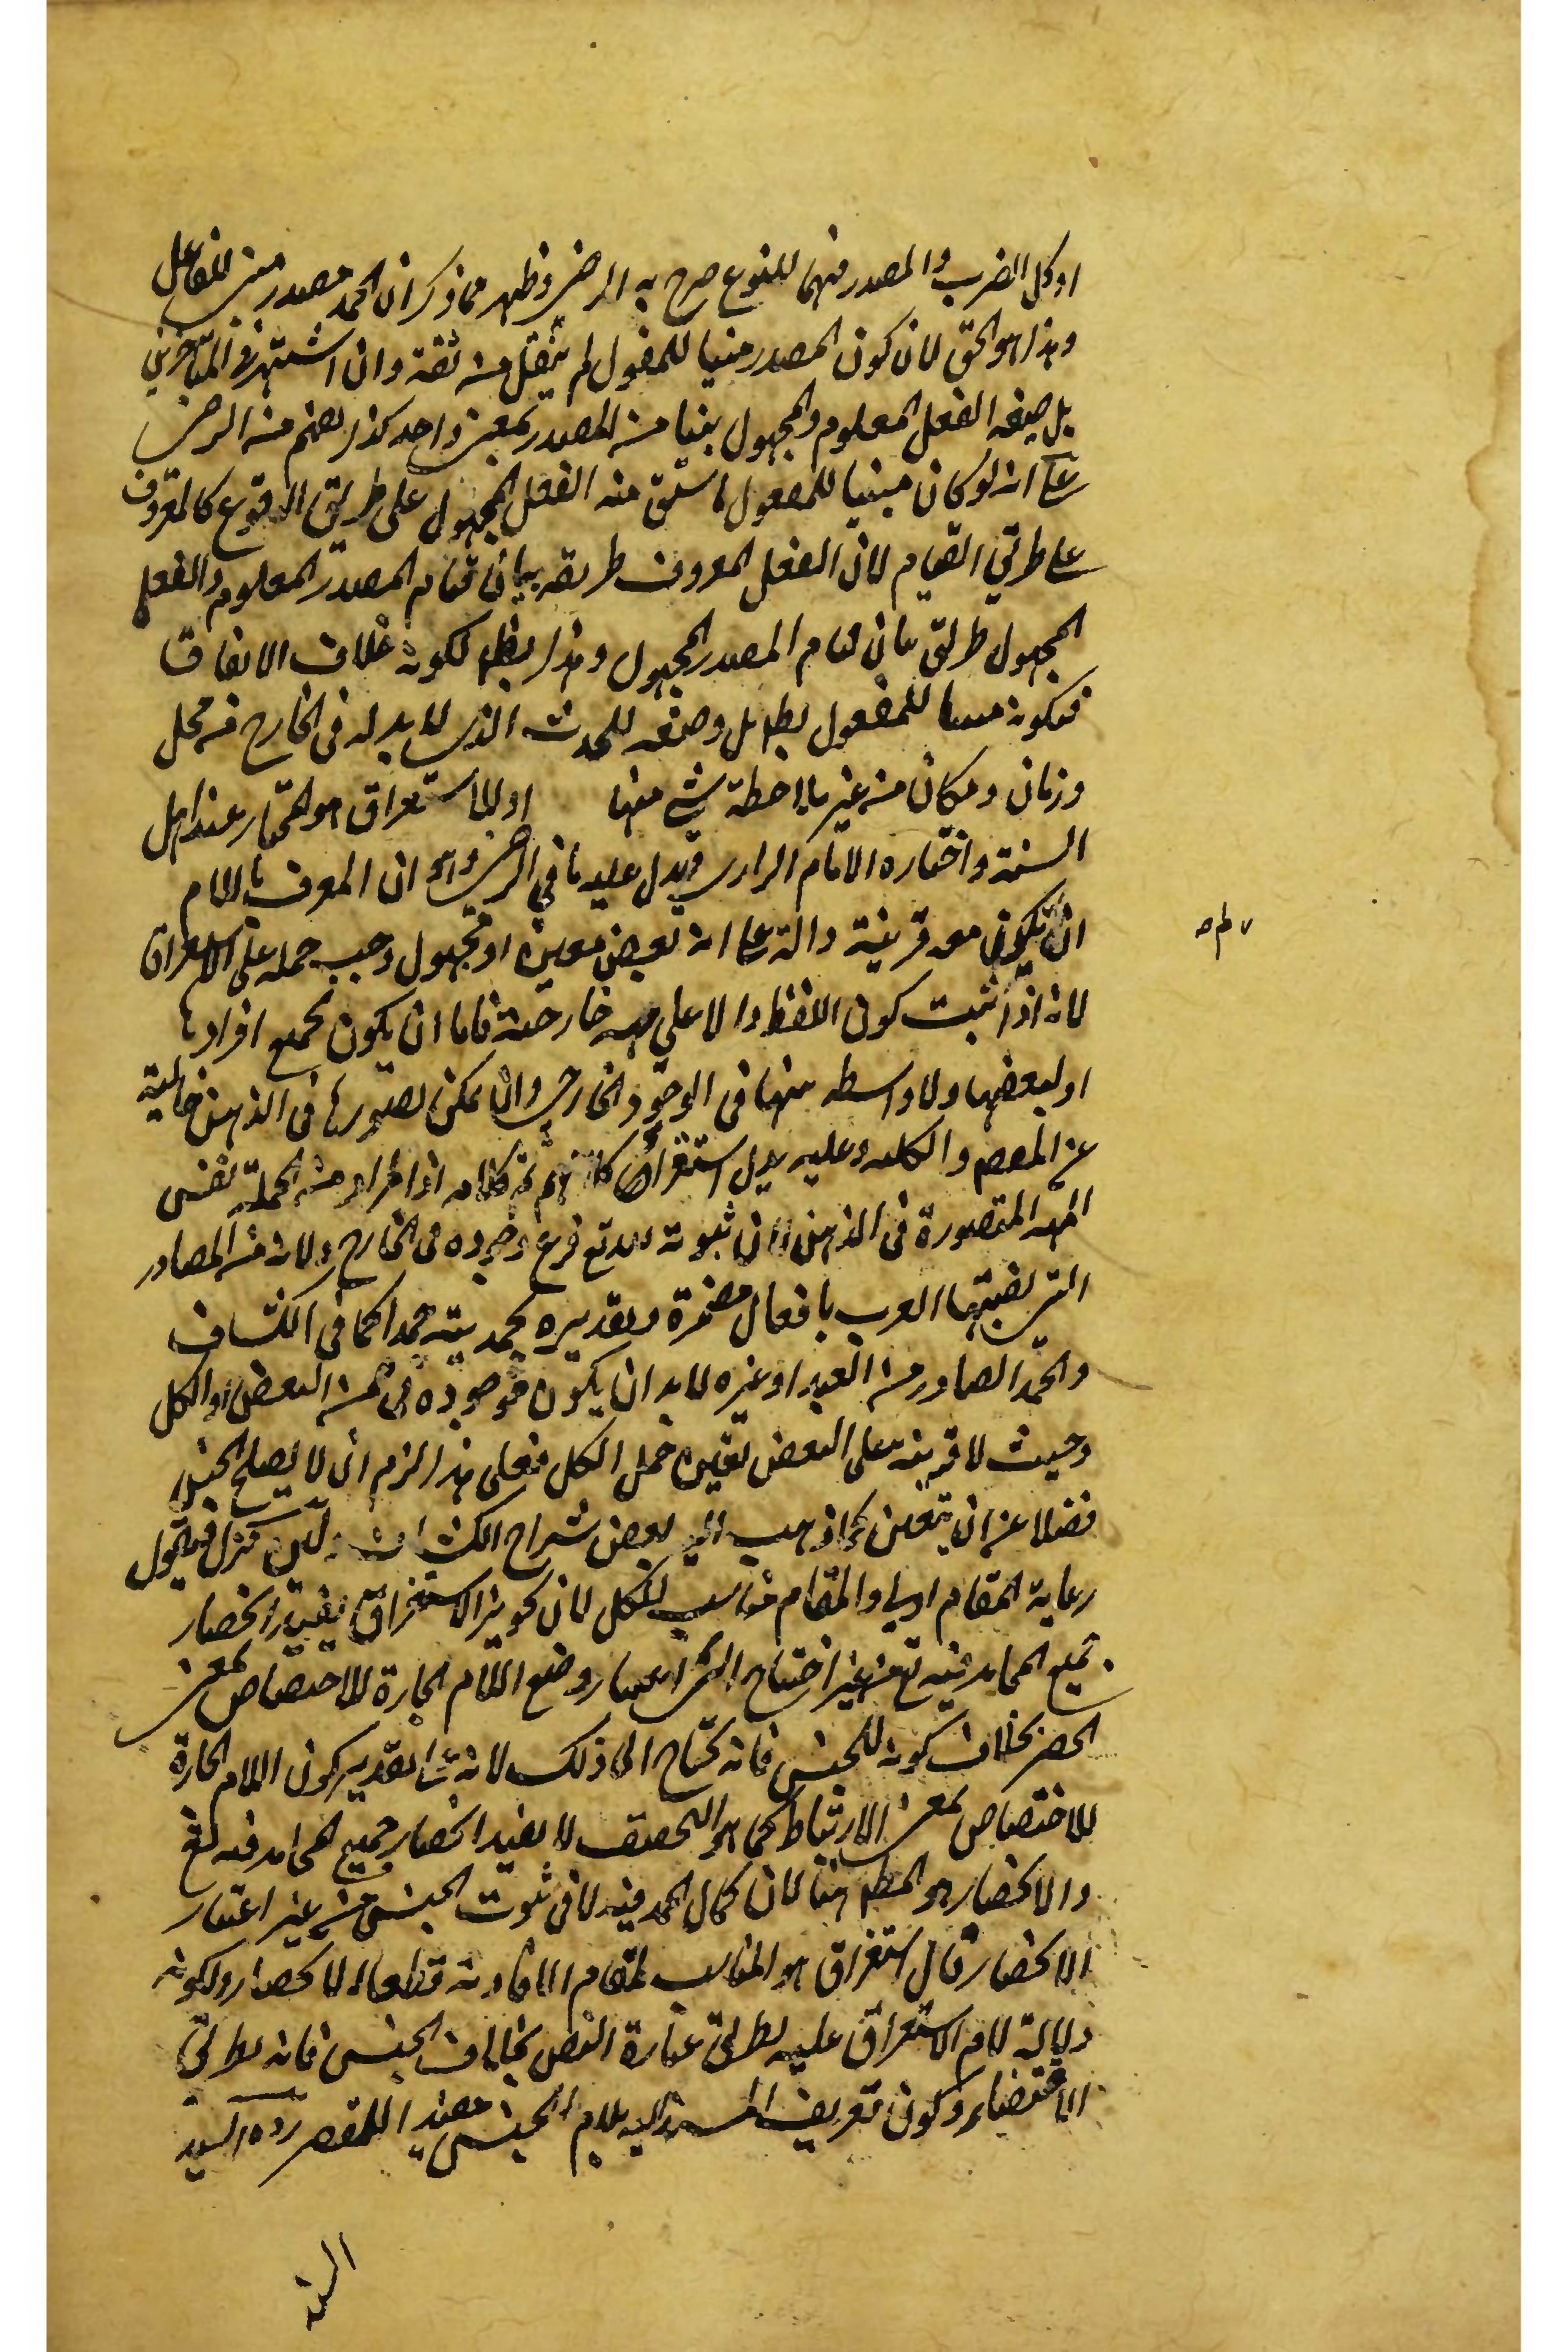 او كل الضرب والمصدر منهما للنوع صرح به الرضي وظهر مما ذكر ان الحمد مصدر مبني للفاعل
وهذا هو الحق لان كون المصدر مبنيا للمفعول لم ينقل من ثقة وان اشتهر في المتأخرين
بل صيغة الفعل المعلوم والمجهول بنيا من المصدر بمعنى واحد كذا يفهم من الرضي
على انه لو كان مبنيا للمفعول لاشتق منه الفعل المجهول على طريق الوقوع كالمعروف
على طريق القيام لان الفعل المعروف طريقه بيان قيام المصدر المعلوم والفعل
المجهول طريق بيان قيام المصدر المجهول وهذا بط لكونه خلاف الاتفاق
فكونه مبنيا للمفعول بط بل وصفه للحدث الذي لا بد له في الخارج من محل
وزمان ومكان من غير ملاحظة شيء منها او للاستغراق هو المختار عند اهل
السنة واختاره الامام الرازي ويدل عليه ما في الرضي وهو ان المعرف باللام
ان لم يكن معه قرينة دالة على انه بعض معين او مجهول وجب حمله على الاستغراق
لانه اذا ثبت كون اللفظ دالا على مهية خارجية فاما ان يكون لجميع افرادها
او لبعضها ولا واسطة بينهما في الوجود الخارجي وان يمكن تصورها في الذهن خالية
عن البعضية والكلية وعليه يدل استقراء كلامهم اذ المراد من الجملة نفس
المهية المتصورة في الذهن لان ثبوته له تع فرع وجوده في الخارج ولانه من المصادر
التي نصبتها العرب بافعال مضمرة وتقديره نحمد الله حمدا كما في الكشاف
والحمد الصادر من العبد او غيره لا بد ان يكون موجوده في ضمن البعض او الكل
وحيث لا قرينة على البعض تعين حمل الكل فعلى هذا لزم ان لا يصلح الجنس
فضلا عن ان يتعين كما ذهب اليه بعض شراح الكشاف ولئن تنزل فنقول
رعاية المقام اولى والمقام مناسب للكل لان كونه للاستغراق يفيد انحصار
جميع المحامد فيه تع من غير احتياج الى اعتبار وضع اللام الجارة للاختصاص بمعنى
الحصر بخلاف كونه للجنس فانه يحتاج الى ذلك لانه على تقدير كون اللام الجارة
للاختصاص بمعنى الارتباط كما هو التحقيق لا يفيد انحصار جميع المحامد فيه تع
والانحصار هو المط هنا لان كمال الحمد فيه لا في ثبوت الجنس من غير اعتبار
الانحصار قال استغراق هو المناسب لمقام الافادته قطعا الانحصار ولكونه
دلالة لام الاستغراق عليه بطريق عبارة النص بخلاف الجنس فانه بطريق
الاقتضاء وكون تعريف المسند اليه بلام الجنس مفيدا للقصر رده السيد
السند